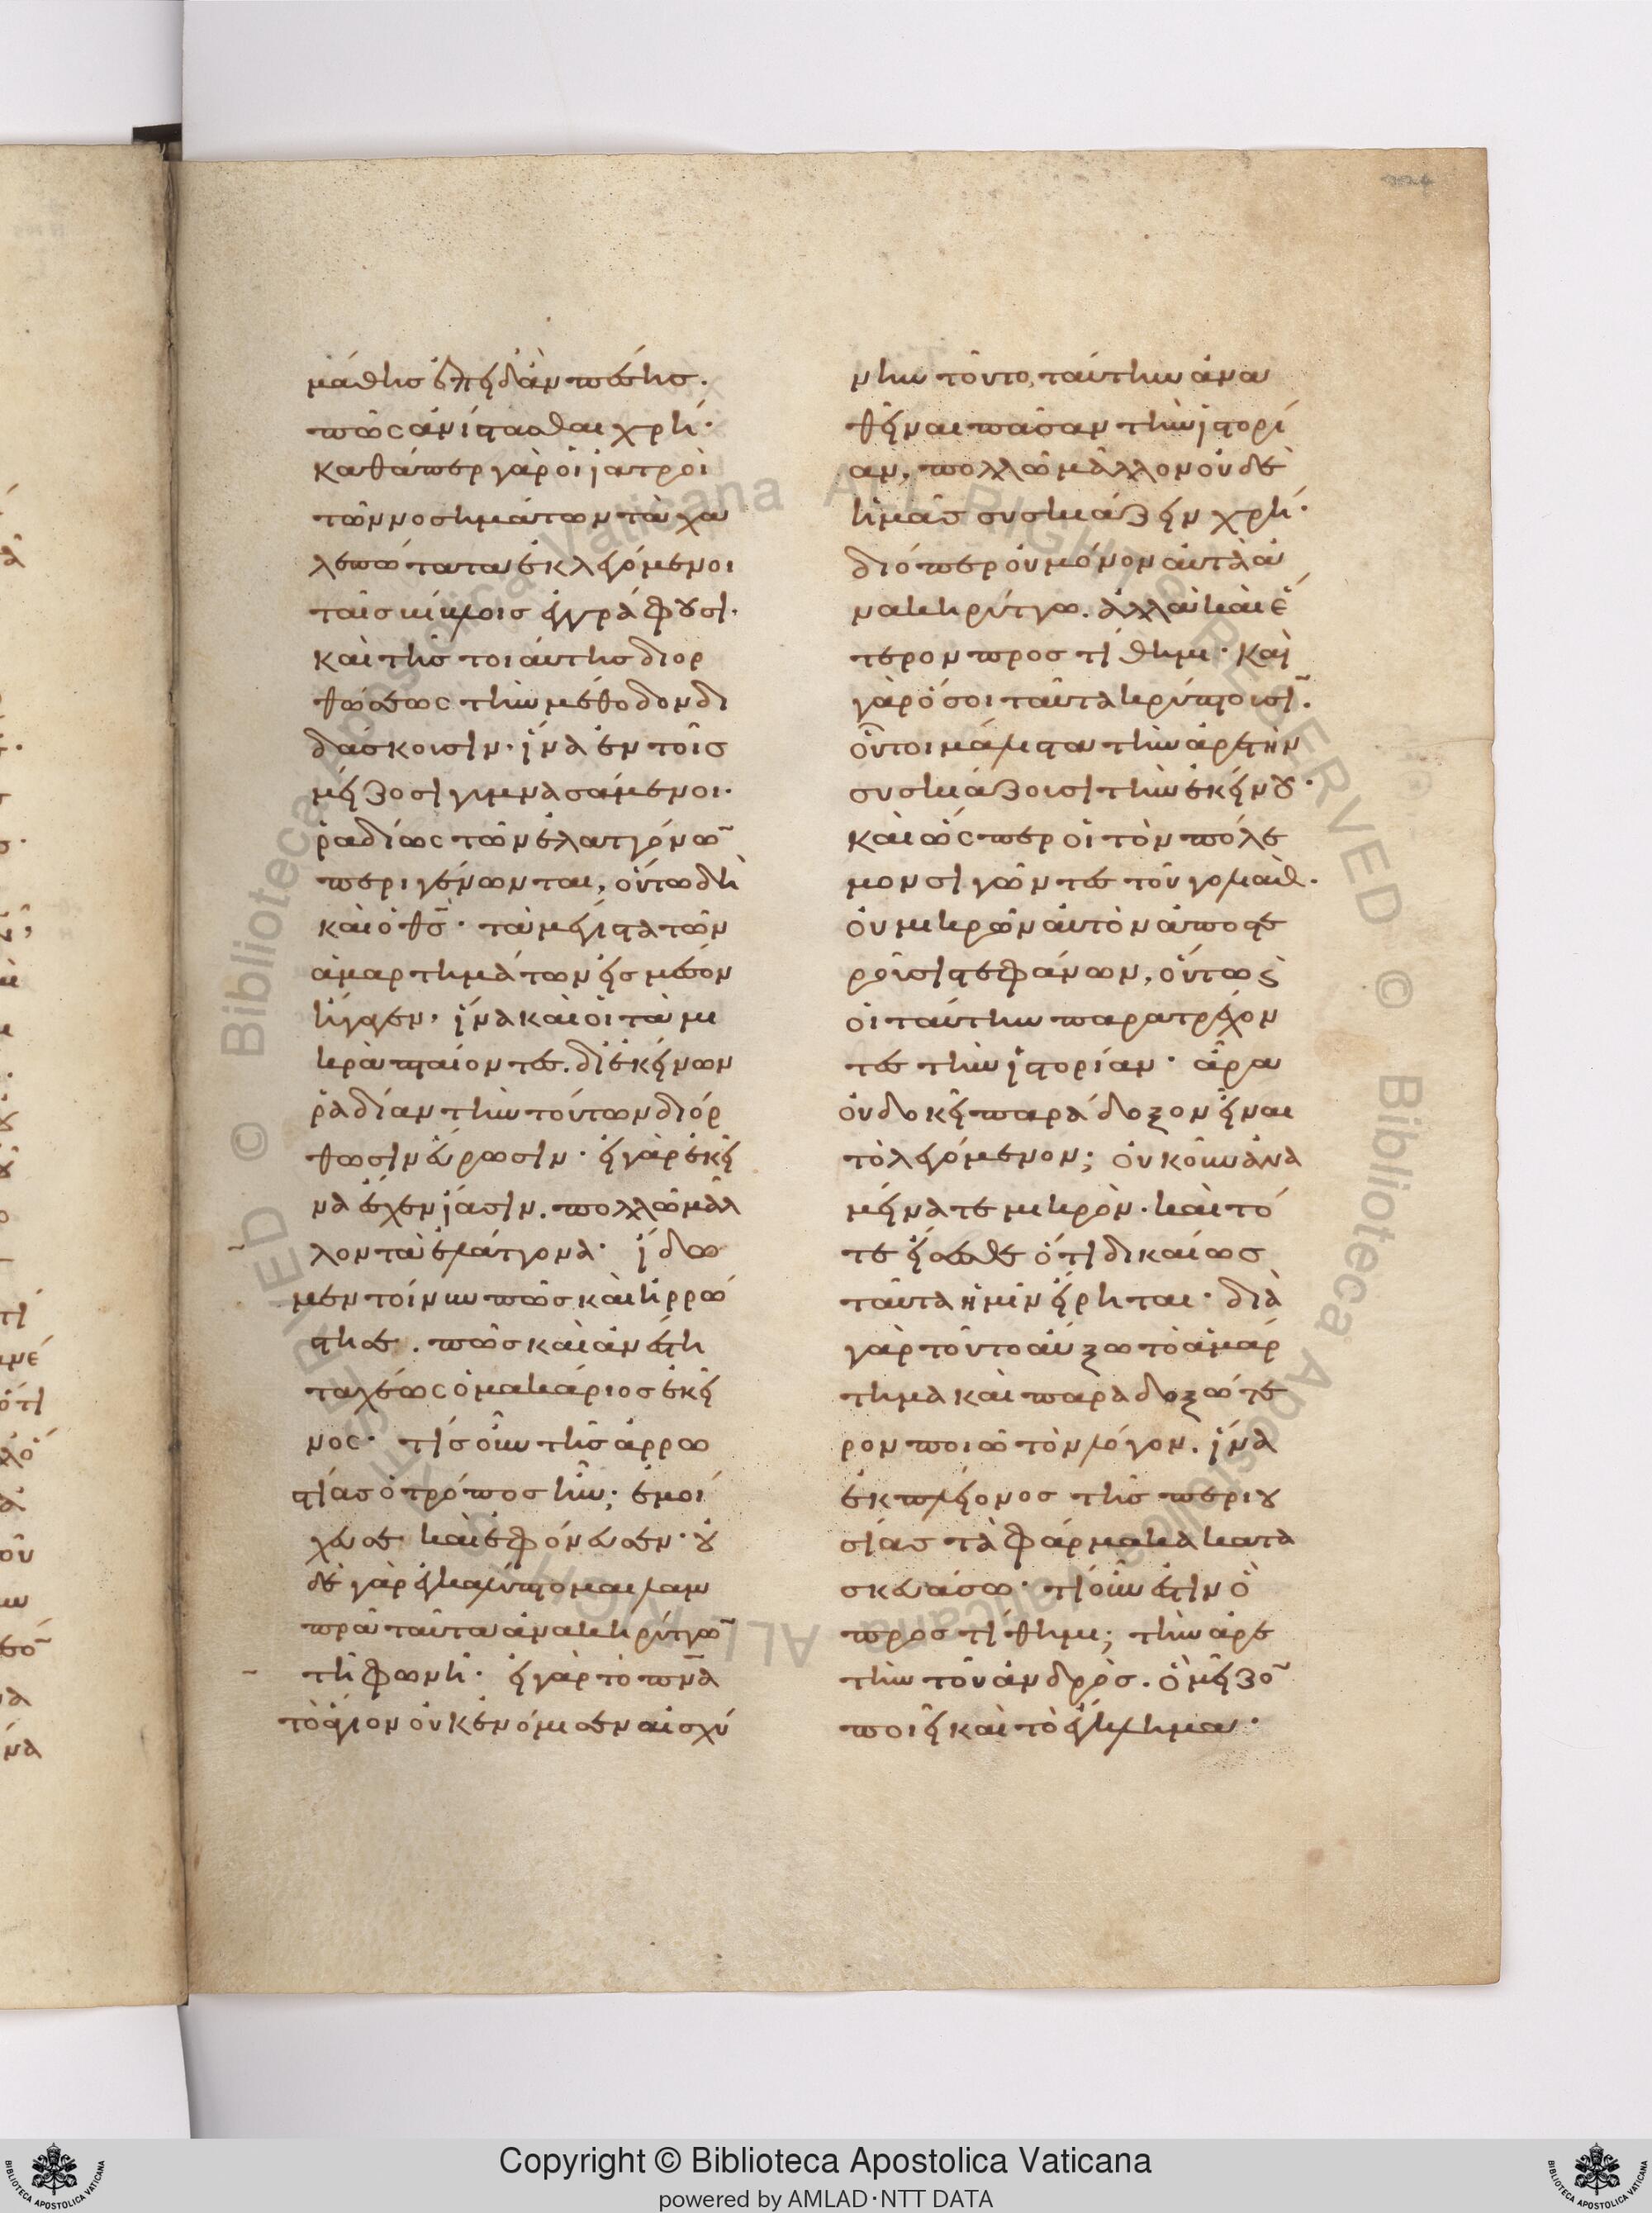 μάθης ἐπειδὰν πέσης.
πῶς ἀνίστασθαι χρή·
καθάπερ γὰρ οἱ ἰατροὶ
τῶν νοσημάτων τὰ χα
λεπώτατα ἐκλεγόμενοι
ταῖς βίβλοις ἐγγράφουσι·
καὶ τῆς τοιαύτης διορ
θώσεως τὴν μέθοδον δι
δάσκουσιν· ἵνα ἐν τοῖς
μείζοσι γυμνασάμενοι·
ῥαδίως τῶν ἐλαττόνω̄
περιγένωνται, οὕτω δὴ
καὶ ὁ θς̄· τὰ μέγιστα τῶν
ἁμαρτημάτων εἰς μέσον
ἤγαγεν, ἵνα καὶ οἱ τὰ μι
κρὰ πταίοντες. δι' ἐκείνων
ῥαδίαν τὴν τούτων διόρ
θωσιν εὕρωσιν· εἰ γὰρ ἐκεῖ
να ἔσχεν ἴασιν. πολλῶ μᾶλ
λον τὰ ἐλάττονα· ἴδω
μεν τοίνυν πῶς καὶ ἠρρώ
στησε. πῶς καὶ ἀνέστη
ταχέως ὁ μακάριος ἐκεῖ
νος· τίς οὖν τῆς ἀρρω
στίας ὁ τρόπος ἦν; ἐμοί
χευσε καὶ ἐφόνευσεν· οὐ
δὲ γὰρ ἐγκαλύπτομαι λαμ
πρᾶ ταῦτα ἀνακηρύττω̄
τῆ φωνῆ· εἰ γὰρ τὸ πν̄α
τὸ ἅγιον οὐκ ἐνόμισεν αἰσχύ
νην τοῦτο, ταύτην ἀνα
θεῖναι πᾶσαν τὴν ἱστορί
αν, πολλῶ μᾶλλον οὐδὲ
ἡμᾶς συσκιάζειν χρή·
διόπερ οὐ μόνον αὐτὰ ἀ
νακηρύττω. ἀλλὰ καὶ ἕ
τερον προστίθημι· καὶ
γὰρ ὅσοι ταῦτα κρύπτουσι.
οὗτοι μάλιστα τὴν ἀρετὴν
συσκιάζουσι τὴν ἐκείνου·
καὶ ὥσπερ οἱ τὸν πόλε
μον σιγῶντες τοῦ γολιάθ.
οὐ μικρῶν αὐτὸν ἀποστε
ροῦσι στεφάνων, οὕτως
οἱ ταύτην παρατρέχον
τες τὴν ἱστορίαν· ἆρα
οὐ δοκεῖ παράδοξον εἶναι
τὸ λεγόμενον; οὐκοῦν ἀνα
μείνατε μικρὸν· καὶ τό
τε εἴσεσθε ὅτι δικαίως
ταῦτα ἡμῖν εἴρηται· διὰ
γὰρ τοῦτο αὔξω τὸ ἁμάρ
τημα καὶ παραδοξώτε
ρον ποιῶ τὸν λόγον. ἵνα
ἐκ πλείονος τῆς περιου
σίας τὰ φάρμακα κατα
σκευάσω· τί οὖν ἐστιν ὃ
προστίθημι; τὴν ἀρε
τὴν τοῦ ἀνδρὸς. ὃ μεῖζο̄
ποιεῖ καὶ τὸ ἔγκλημα·
Copyright © Biblioteca Apostolica Vaticana
powered by AMLAD·NTT DATA